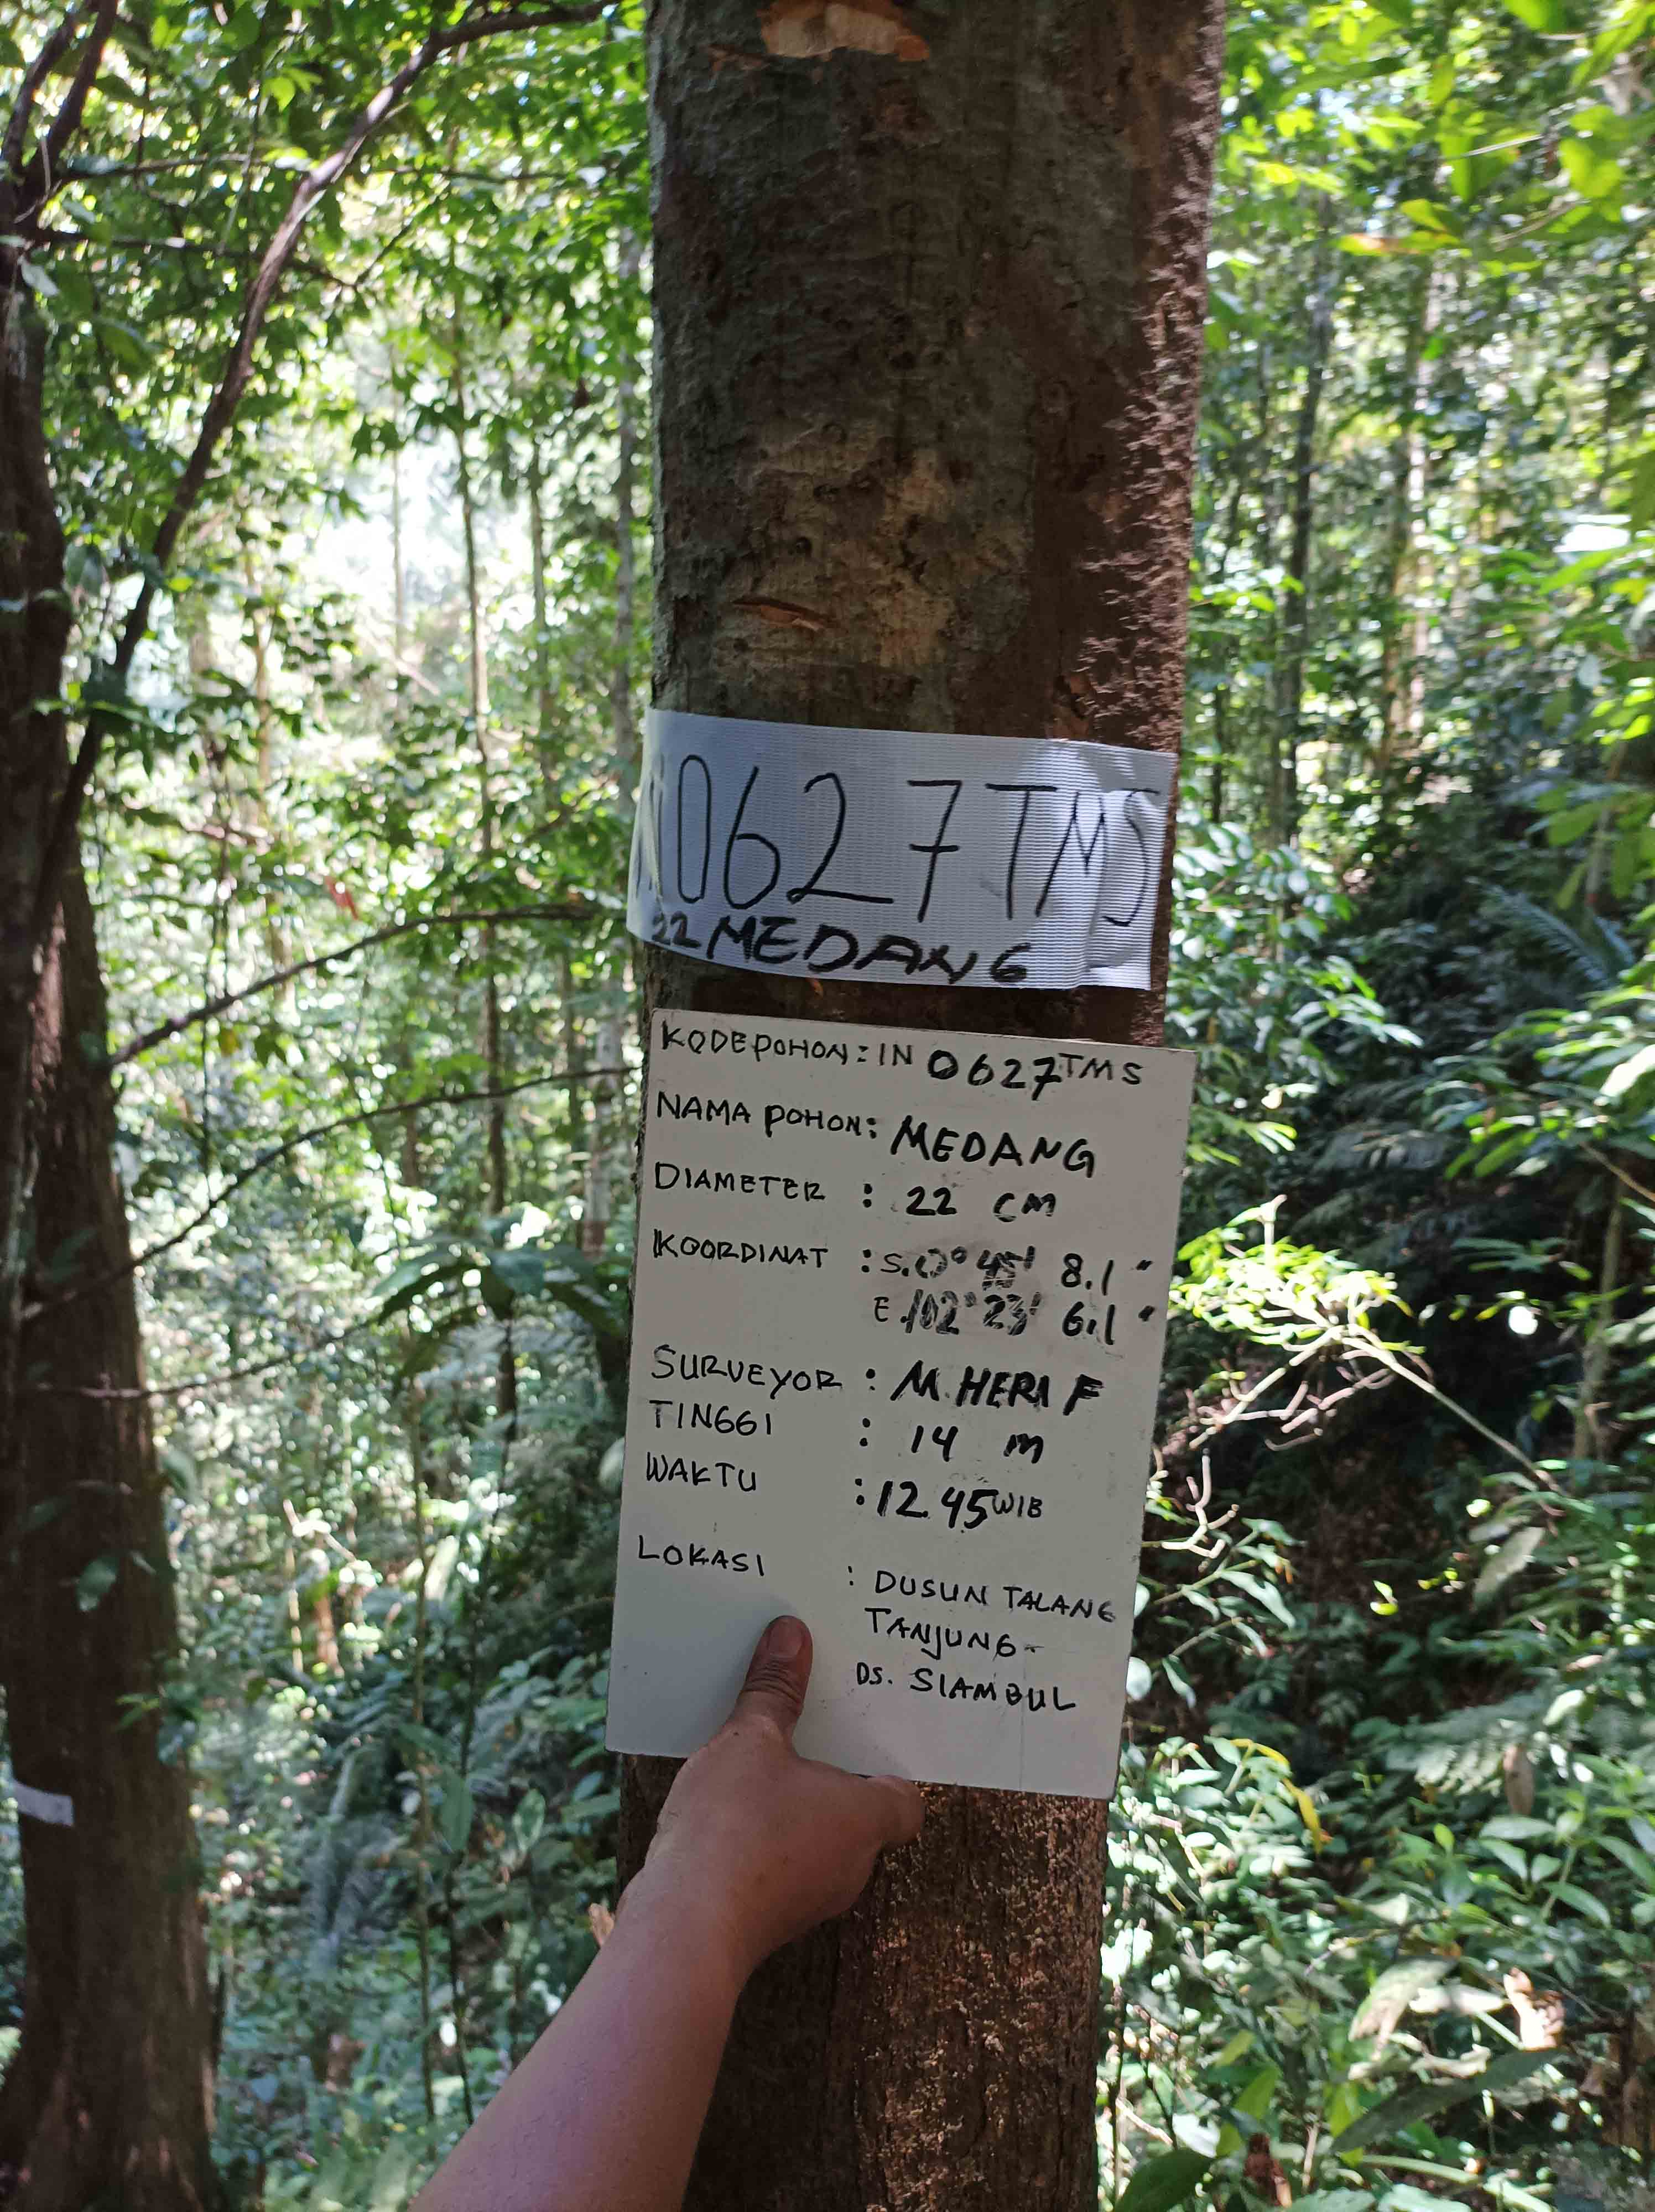 0627 TMS
22 MEDANG
KODE POHON : IN 0627 TMS
NAMA POHON : MEDANG
DIAMETER : 22 CM
KOORDINAT : S. 0° 45' 8.1 "
E. 102° 23' 6.1 "
SURVEYOR : M. HERI F
TINGGI : 14 m
WAKTU : 12.45 WIB
LOKASI : DUSUN TALANG
TANJUNG -
DS. SIAMBUL